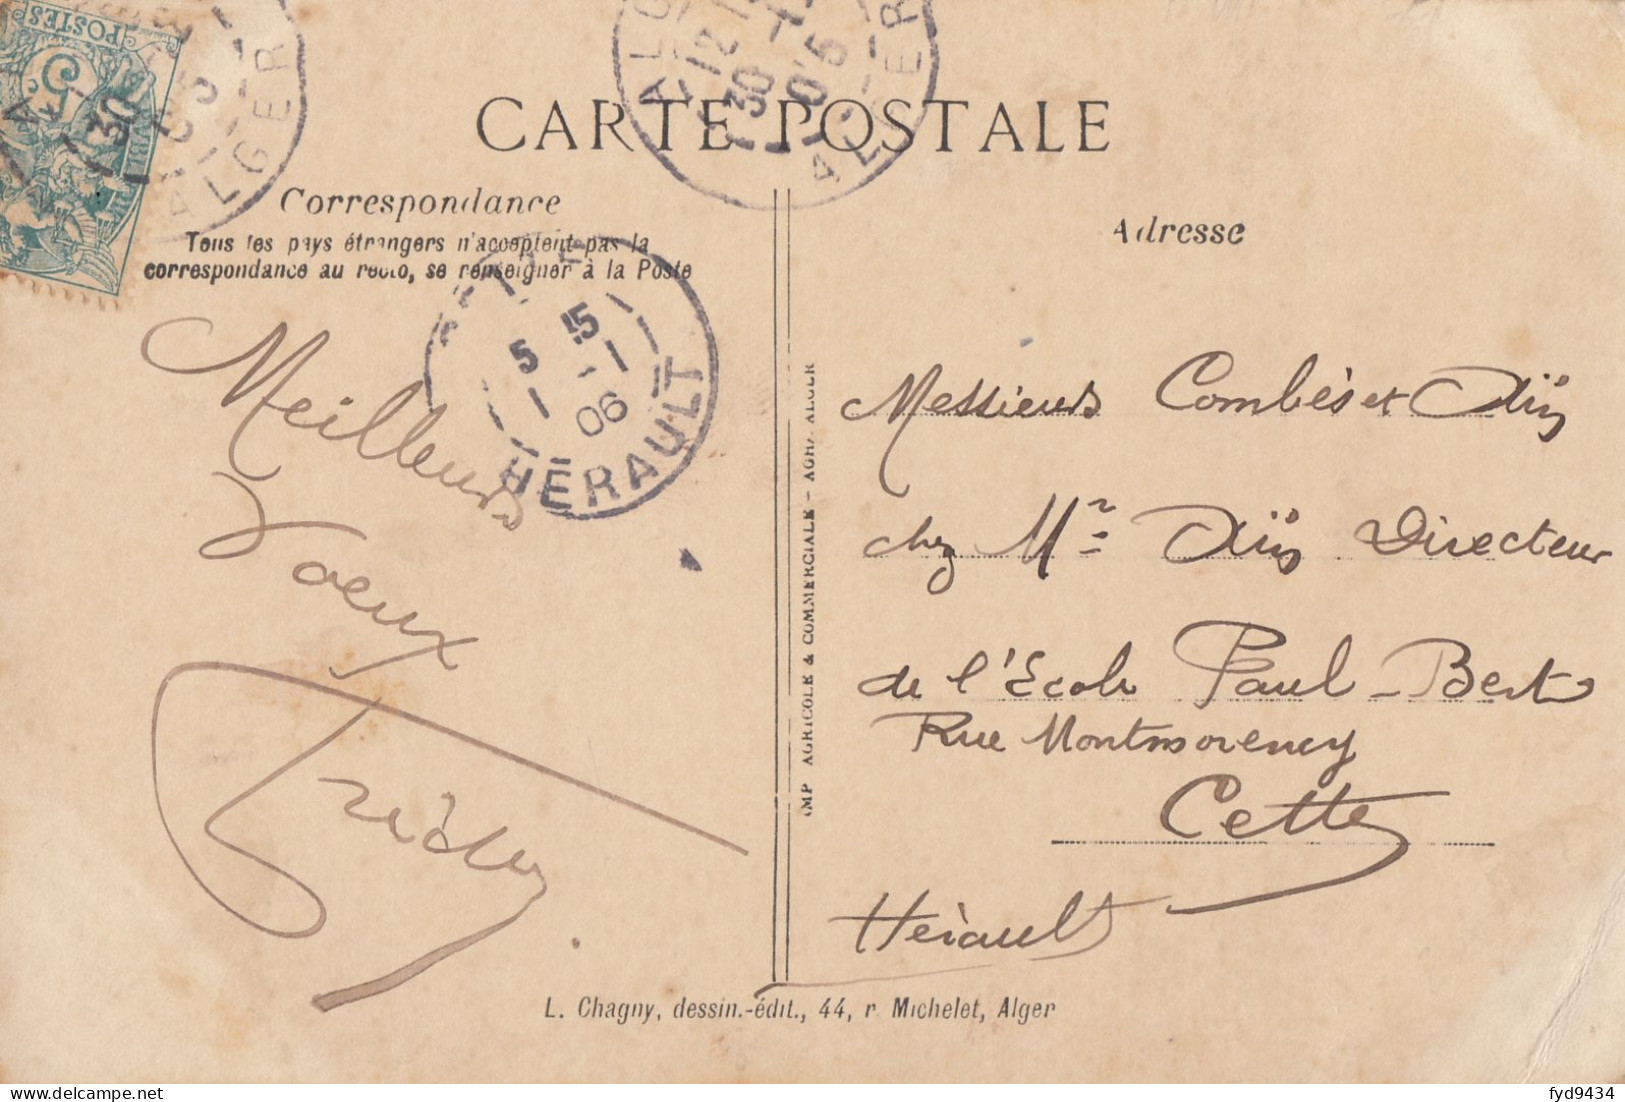 POSTES
5
ALGER
30
05
ALGER
12
30
05
ALGER
CARTE POSTALE
Correspondance
Tous les pays étrangers n'acceptent pas la
correspondance au recto, se renseigner à la Poste
CETTE
5 15
1 - 1
06
HÉRAULT
Meilleurs
Voeux
Adresse
Messieurs Combès et
chez Mr Directeur
de l'École Paul-Bert
Rue Montmorency
Cette
Hérault
IMP AGRICOLE & COMMERCIALE - AGHA ALGER
L. Chagny, dessin.-édit., 44, r Michelet, Alger
fyd9434